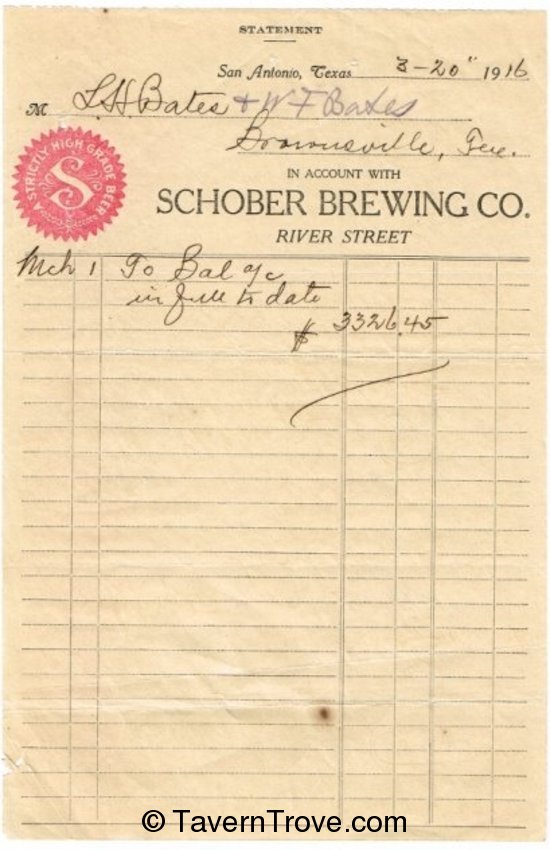 STATEMENT
San Antonio, Texas 3-20" 1916
M L.H. Bates & W F Bates
Brownsville, Tex.
STRICTLY HIGH GRADE BEER
S
IN ACCOUNT WITH
SCHOBER BREWING CO.
RIVER STREET
Mch 1 To Bal a/c
in full to date
$ 3326.45
© TavernTrove.com